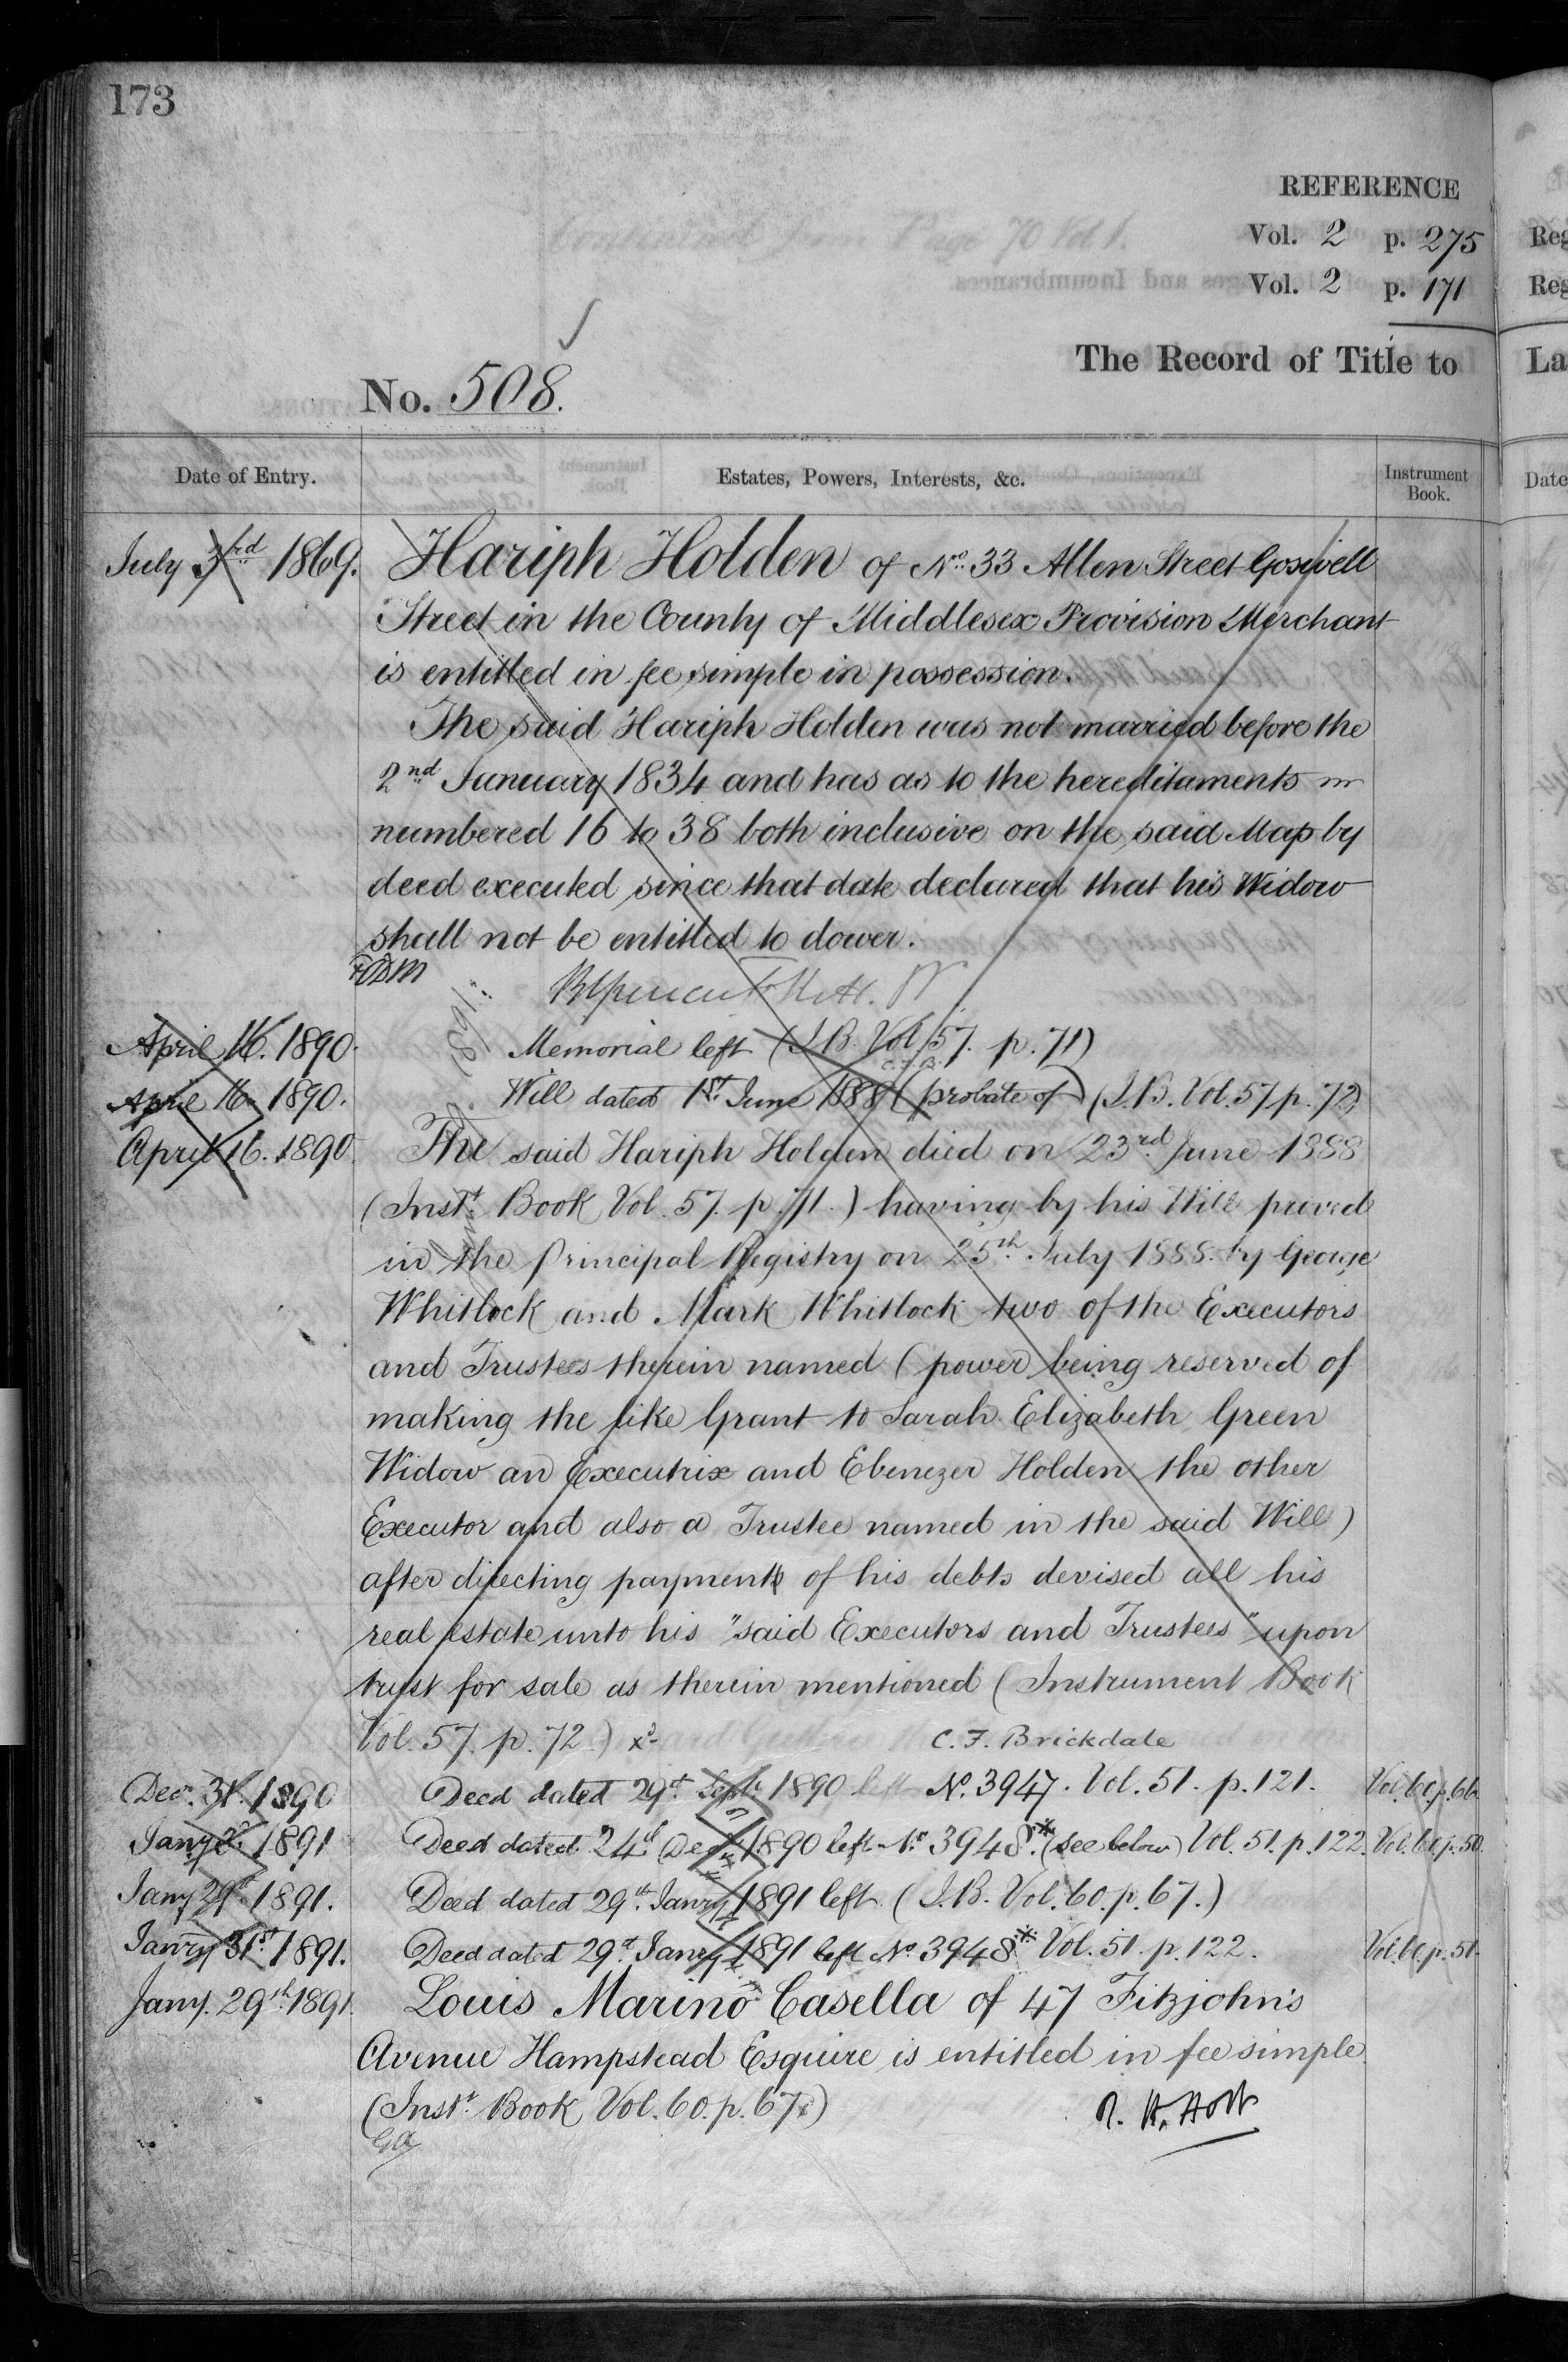 173
REFERENCE
Vol. 2 p. 275
Vol. 2 p. 171
The Record of Title to
No. 508.
Date of Entry. Estates, Powers, Interests, &c. Instrument Book.
July 3rd 1869. Hariph Holden of No. 33 Allen Street Goswell
Street in the County of Middlesex Provision Merchant
is entitled in fee simple in possession.
The said Hariph Holden was not married before the
2nd January 1834 and has as to the hereditaments
numbered 16 to 38 both inclusive on the said Map by
deed executed since that date declared that his Widow
shall not be entitled to dower.
April 16. 1890. Memorial left (I.B. Vol. 57. p. 71)
April 16 1890. Will dated 1st June 1888 (probate of) (I.B. Vol. 57 p. 72)
April 16. 1890 The said Hariph Holden died on 23rd June 1888
(Instt. Book Vol. 57. p. 71.) having by his Will proved
in the Principal Registry on 25th July 1888 by George
Whitlock and Mark Whitlock two of the Executors
and Trustees therein named (power being reserved of
making the like Grant to Sarah Elizabeth Green
Widow an Executrix and Ebenezer Holden the other
Executor and also a Trustee named in the said Will)
after directing payment of his debts devised all his
real estate unto his "said Executors and Trustees" upon
trust for sale as therein mentioned (Instrument Book
Vol. 57. p. 72.) C. F. Brickdale
Dec. 31. 1890 Deed dated 29th Septr. 1890 left No. 3947. Vol. 51. p. 121. Vol. 60. p. 66.
Jany 1891 Deed dated 24th Dec 1890 left No. 3948* (see below) Vol. 51. p. 122. Vol. 61. p. 50.
Jany 29th 1891. Deed dated 29th Janry 1891 left (I.B. Vol. 60. p. 67.)
Janry 31st 1891. Deed dated 29th Janry 1891 left No. 3948* Vol. 51. p. 122. Vol. 61. p. 51.
Jany. 29th 1891. Louis Marino Casella of 47 Fitzjohn's
Avenue Hampstead Esquire is entitled in fee simple
(Instt. Book Vol. 60. p. 67.)
R. H. Holt
Reg
Reg
La
Date